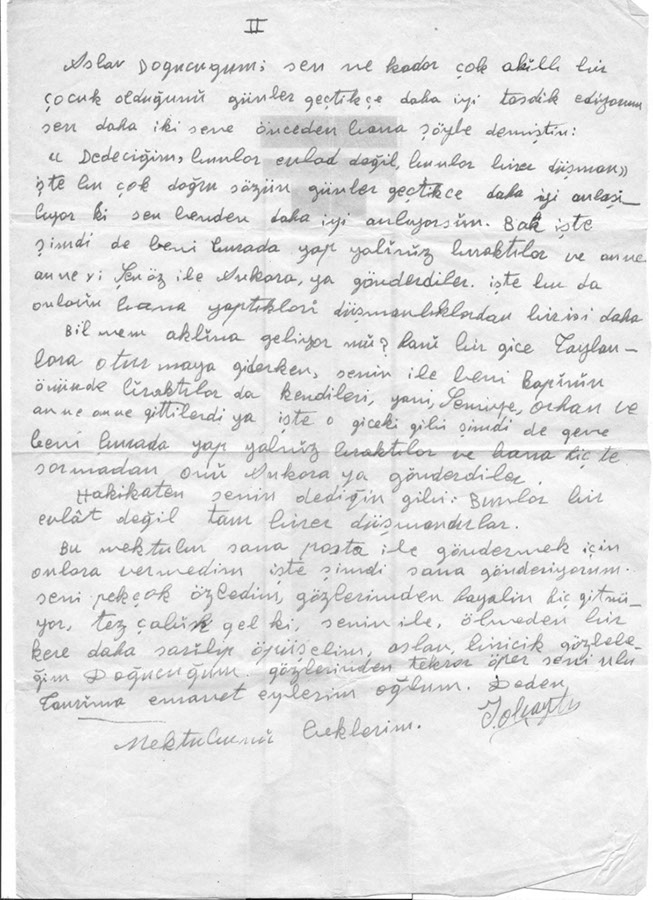 II
Aslan Doğucuğum; sen ne kadar çok akıllı bir
çocuk olduğunu günler geçtikçe daha iyi tasdik ediyorum
sen daha iki sene önceden bana şöyle demiştin:
« Dedeciğim, bunlar evlad değil, bunlar birer düşman»
işte bu çok doğru sözün günler geçtikce daha iyi anlaşı-
lıyor ki sen benden daha iyi anlıyorsun. Bak işte
şimdi de beni burada yap yalınız bıraktılar ve anne
anneyi Şenöz ile Ankara,ya gönderdiler. işte bu da
onların bana yaptıkları düşmanlıklardan birisi daha
Bilmem aklına geliyor mü? hani bir gice Taylan-
lara oturmaya giderken, senin ile beni Kapının
önünde bıraktılar da kendileri, yani, Semiye, Orhan ve
anne anne gittilerdi ya işte o giceki gibi şimdi de gene
beni burada yap yalnız bıraktılar ve bana hiç te
sormadan onü Ankara ya gönderdiler.
Hakikaten senin dediğin gibi: Bunlar bir
evlât değil tam birer düşmandırlar.
Bu mektubu sana posta ile göndermek için
onlara vermedim işte şimdi sana gönderiyorum.
seni pekçok özledim, gözlerimden hayalin hiç gitmi-
yor, tez çabük gel ki, senin ile, ölmeden bir
kere daha sarılıp öpüşelim, aslan, biricik gözbebe-
ğim Doğucuğum. gözlerinden tekrar öper seni ulu
Tanrıma emanet eylerim oğlum. Deden
Mektubunü beklerim.